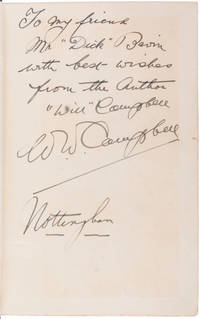 To my friend
Mr "Dick"
with best wishes
from the Author
"Will" Campbell
W W Campbell
Nottingham